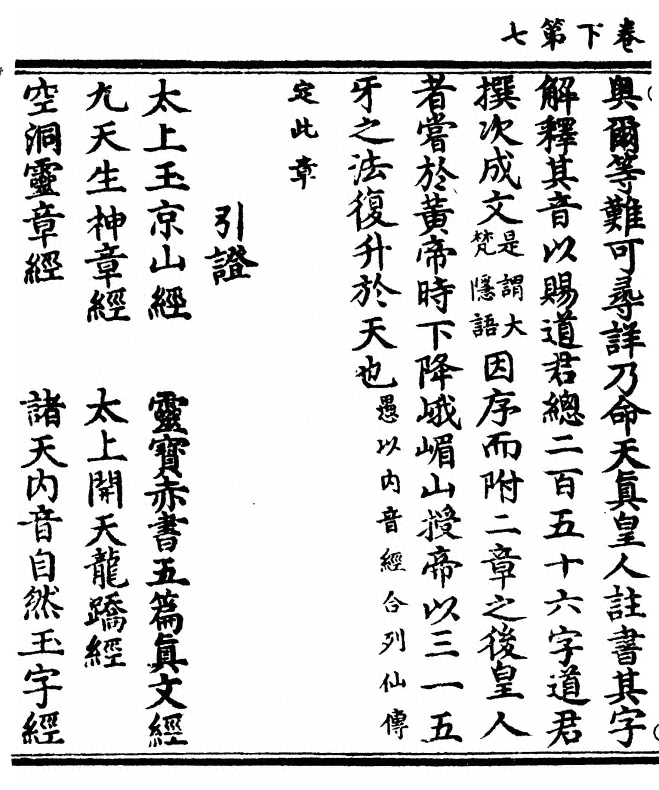 卷下第七
奧爾等難可尋詳乃命天真皇人註書其字
解釋其音以賜道君總二百五十六字道君
撰次成文是謂大梵隱語因序而附二章之後皇人
者嘗於黃帝時下降峨嵋山授帝以三一五
牙之法復升於天也愚以内音經合列仙傳
定此章
引證
太上玉京山經 靈寶赤書五篇真文經
九天生神章經 太上開天龍蹻經
空洞靈章經 諸天内音自然玉字經